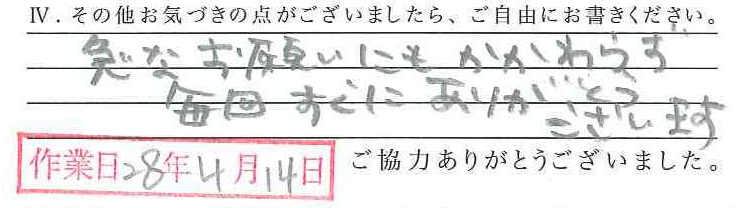 Ⅳ．その他お気づきの点がございましたら、ご自由にお書きください。
急なお願いにもかかわらず
毎回 すぐに ありがとう
ございます
作業日28年4月14日
ご協力ありがとうございました。